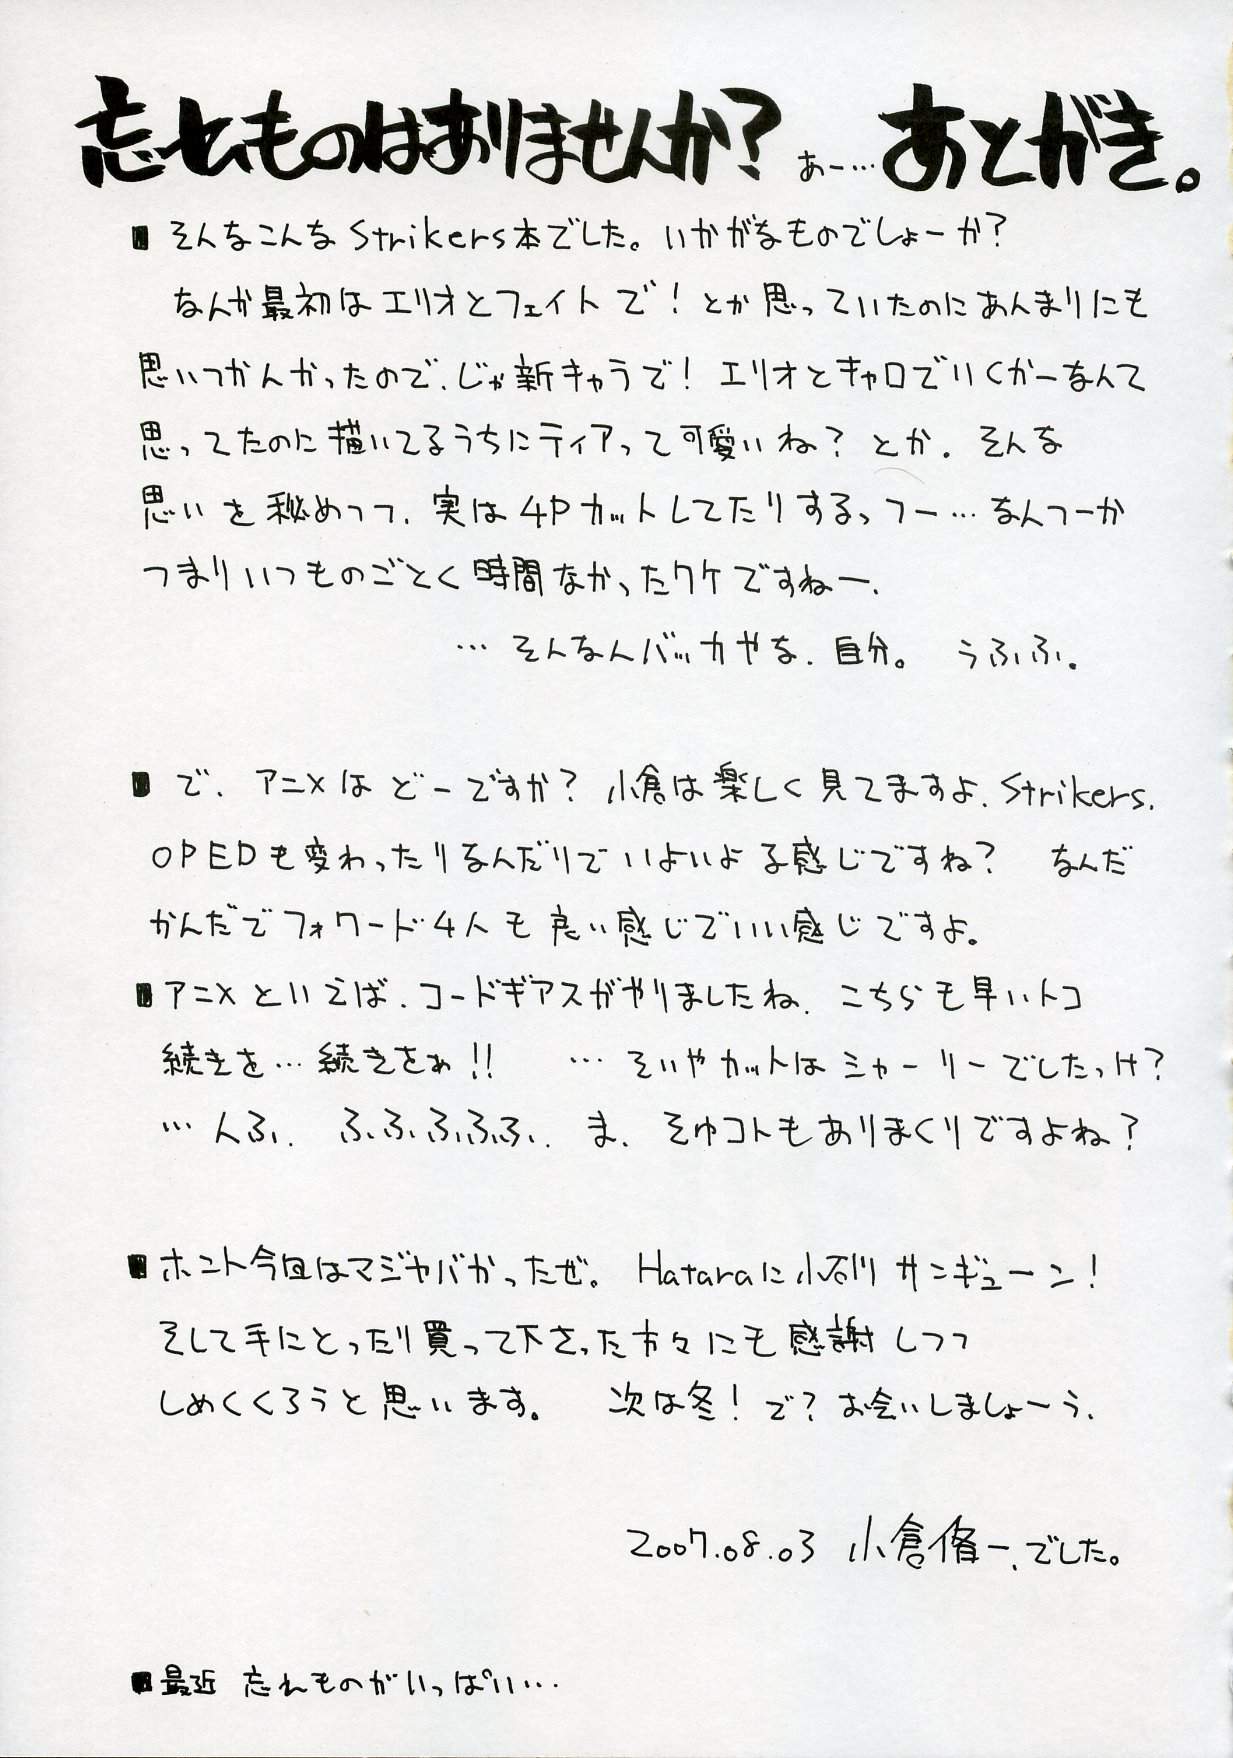 忘れものはありませんか? あー…あとがき。
■ そんなこんなStrikers本でした。いかがなものでしょーか?
なんか最初はエリオとフェイトで!とか思っていたのにあんまりにも
思いつかんかったので、じゃ新キャラで!エリオとキャロでいくかーなんて
思ってたのに描いてるうちにティアって可愛いね?とか、そんな
思いを秘めつつ、実は4Pカットしてたりするっつー…なんつーか
つまりいつものごとく時間なかったワケですねー、
…そんなんバッカやな、自分。 うふふ。
■ で、アニメはどーですか? 小倉は楽しく見てますよ、Strikers.
OPEDも変わったりなんだりでいよいよな感じですね? なんだ
かんだでフォワード4人も良い感じでいい感じですよ。
■アニメといえば、コードギアスがやりましたね、こちらも早いトコ
続きを…続きをぉ!! …そいやカットはシャーリーでしたっけ?
…んふ、ふふふふふ、ま、そゆコトもありまくりですよね?
■ホント今回はマジヤバかったぜ。Hataraに小石川サンギューン!
そして手にとったり買って下さった方々にも感謝しつつ
しめくくろうと思います。 次は冬!で?お会いしましょーう、
2007.08.03 小倉脩一、でした。
■最近 忘れものがいっぱい…